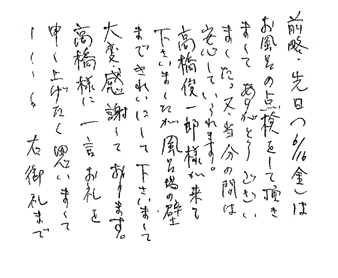 前略・先日つ6/16金)は
お風呂の点検をして頂き
まして ありがとうございい
ました。又、当分の間は
安心していられます。
高橋俊一郎様が来て
下さいましたが風呂場の壁
まできれいにして下さいまして
大変感謝しております。
高橋様に一言お礼を
申し上げたく思いまして
右御礼まで